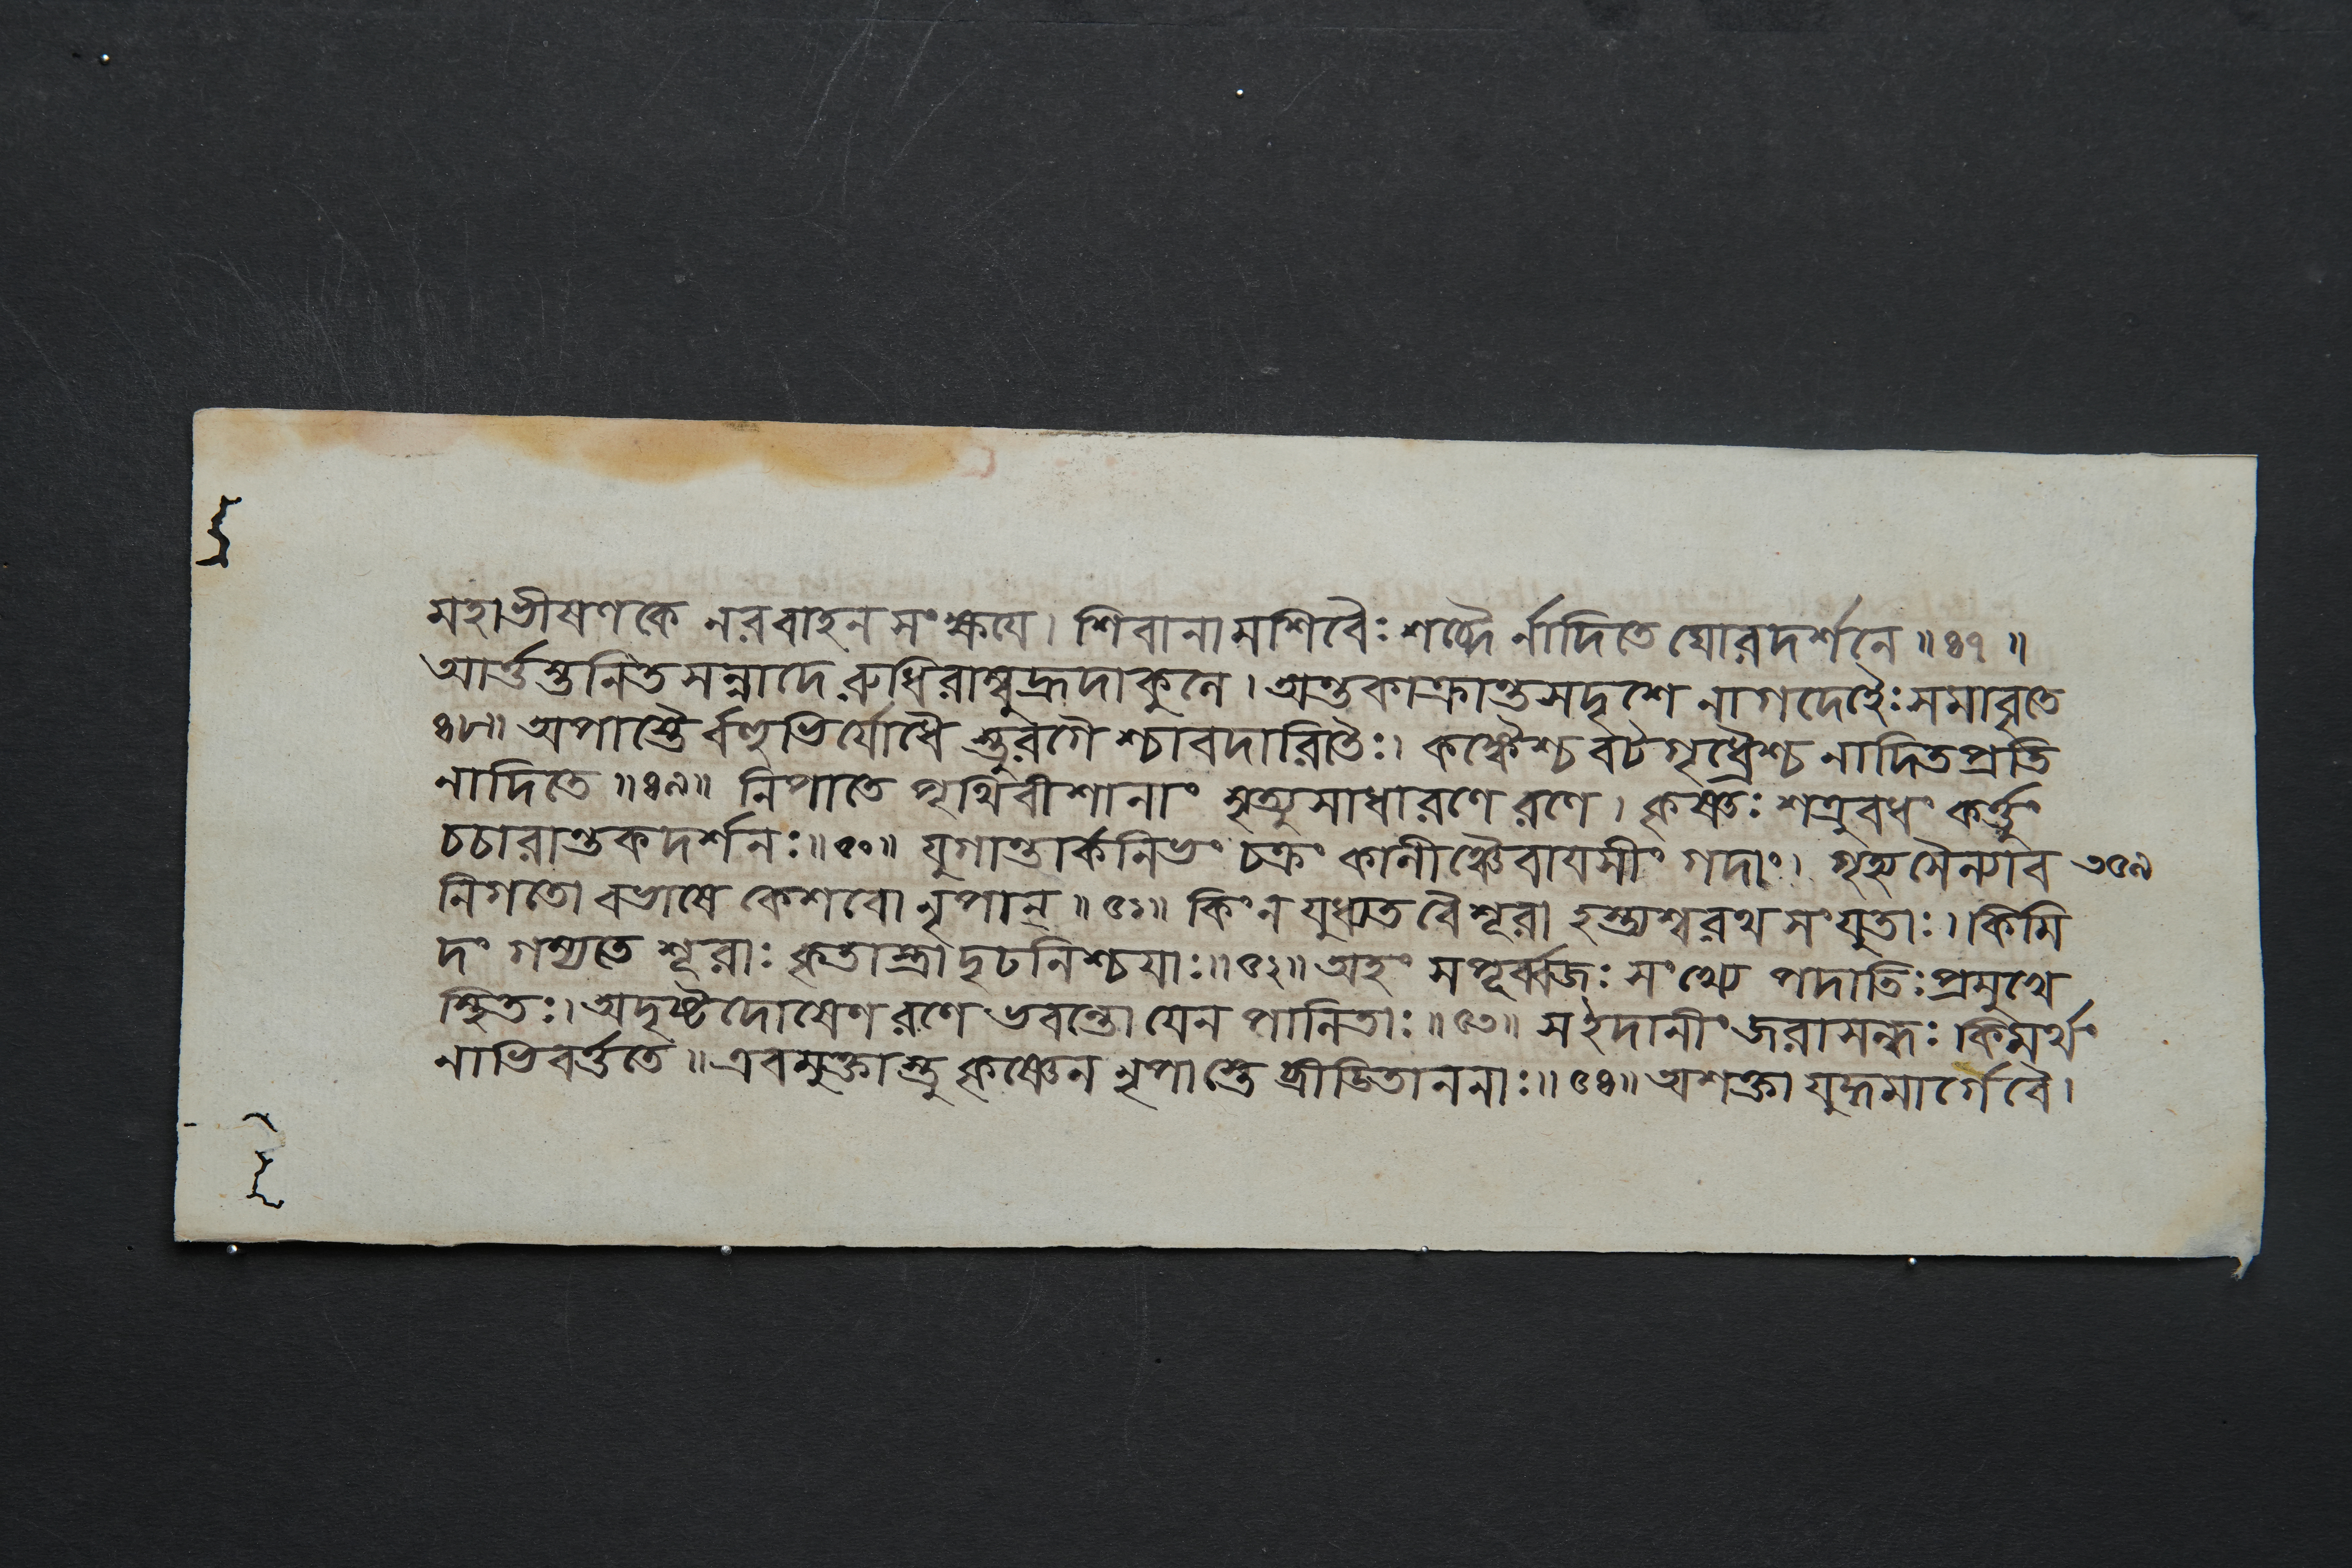 মহাভীষণকে নরবাহনসংক্ষযে। শিবানামশিবৈঃ শব্দৈর্নাদিতে ঘোরদর্শনে॥৪৭॥
আর্ত্তস্তনিতসন্নাদে রুধিরাম্বুহ্রদাকুলে। অন্তকাক্রান্তসদৃশে নাগদেহৈঃ সমাবৃতে
৪৮॥ অপাস্তৈর্বহুভির্যোধৈস্তুরগৈশ্চাবদারিতৈঃ। কঙ্কৈশ্চ বটগৃধ্রৈশ্চ নাদিতপ্রতি
নাদিতে॥৪৯॥ নিপাতে পৃথিবীশানাং মৃত্যুসাধারণে রণে। কৃষ্ণঃ শত্রুবধং কর্ত্তুং
চচারান্তকদর্শনঃ॥৫০॥ যুগান্তার্কনিভং চক্রং কালীঞ্চৈবাযসীং গদাং। গৃহ্য সৈন্যাব ৩৫৯
নিগতো বভাষে কেশবো নৃপান্॥৫১॥ কিং ন যুধ্যত বৈ শূরা হস্ত্যশ্বরথসংযুতাঃ। কিমি
দং গম্যতে শূরাঃ কৃতাস্ত্রা দৃঢনিশ্চযাঃ॥৫২॥ অহং সপূর্ব্বজঃ সংখ্যে পদাতিঃ প্রমুখে
স্থিতঃ। অদৃষ্টদোষেণ রণে ভবন্তো যেন পালিতাঃ॥৫৩॥ স ইদানীং জরাসন্ধঃ কিমর্থং
নাভিবর্ত্ততে॥ এবমুক্তাস্তু কৃষ্ণেন নৃপাস্তে ব্রীডিতাননাঃ॥৫৪॥ অশক্তা যুদ্ধমার্গে বৈ।